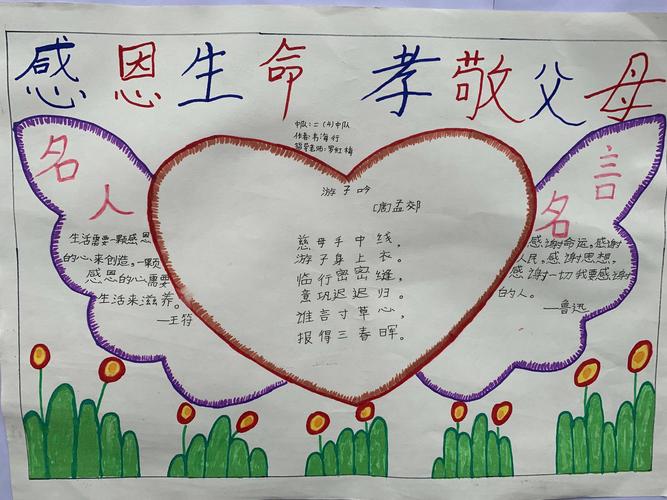 感恩生命 孝敬父母
中队:二(4)中队
作者:韦海行
辅导老师:罗红梅
名人
生活需要一颗感恩
的心来创造,一颗
感恩的心需要
生活来滋养。
—王符
游子吟
[唐]孟郊
慈母手中线,
游子身上衣。
临行密密缝,
意巩迟迟归。
谁言寸草心,
报得三春晖。
名言
感谢命运,感谢
人民,感谢思想,
感谢一切我要感谢
的人。
—鲁迅